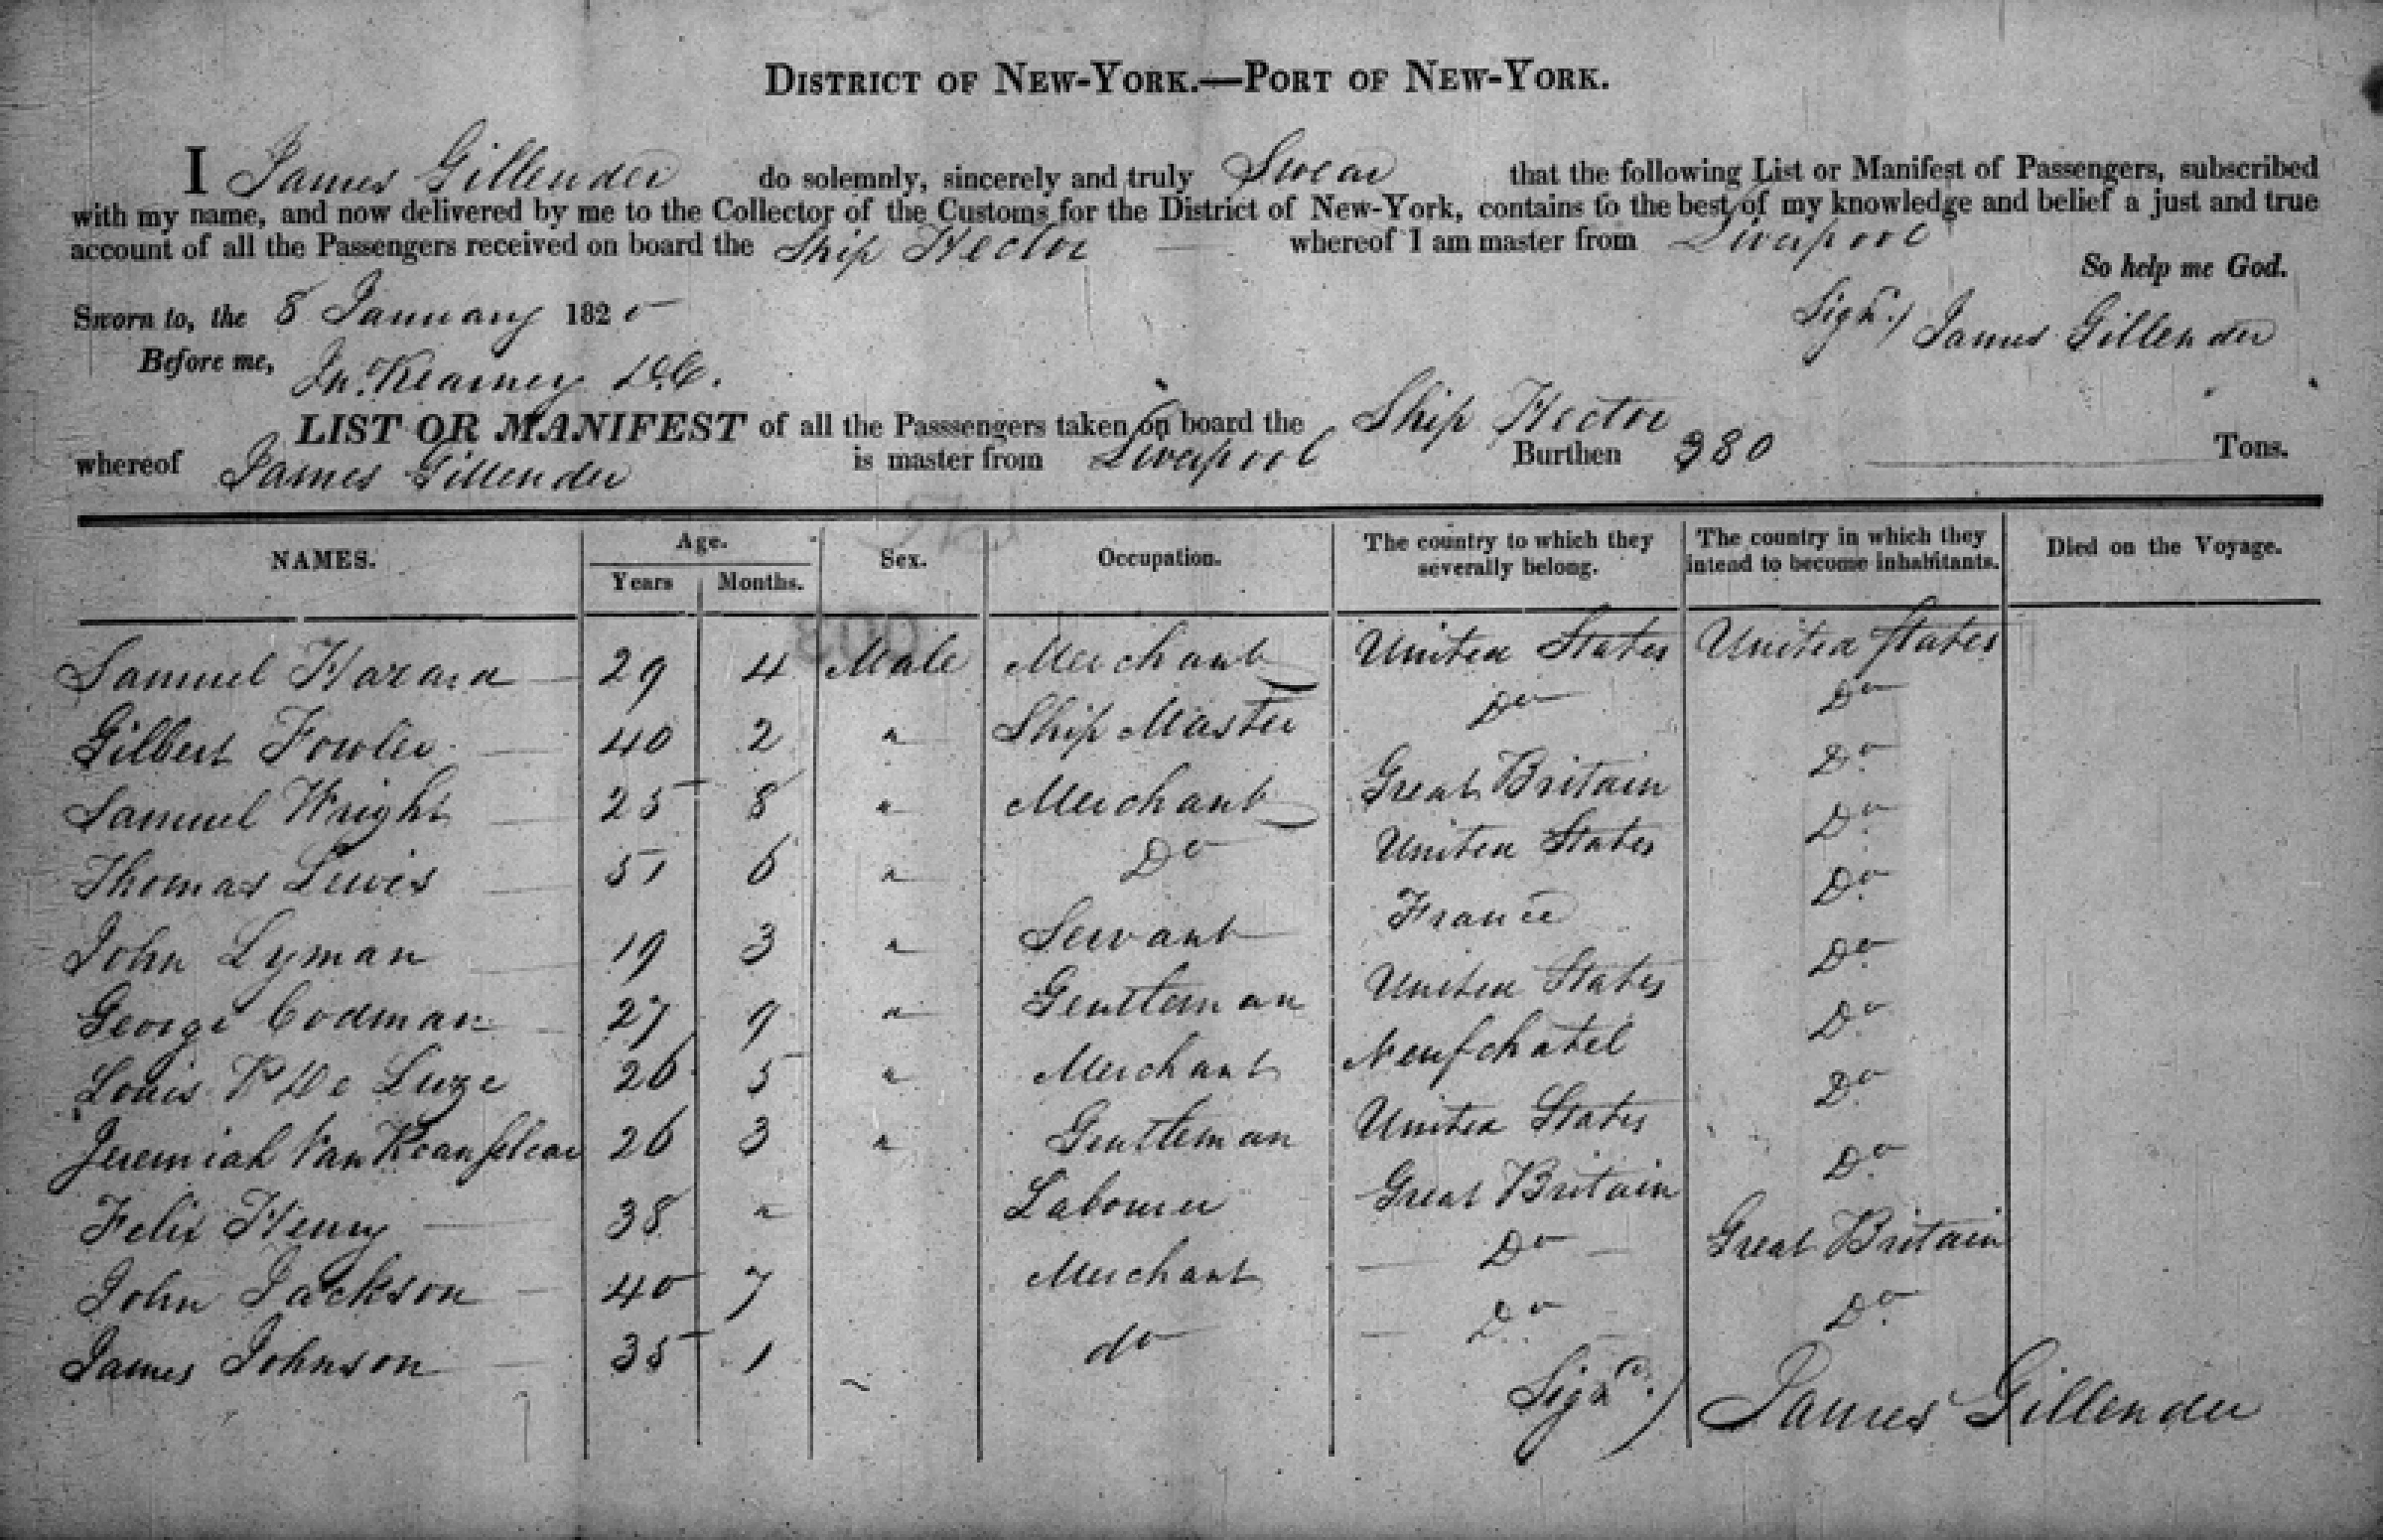 DISTRICT OF NEW-YORK.—PORT OF NEW-YORK.
I James Gillender do solemnly, sincerely and truly Swear that the following List or Manifest of Passengers, subscribed
with my name, and now delivered by me to the Collector of the Customs for the District of New-York, contains to the best of my knowledge and belief a just and true
account of all the Passengers received on board the Ship Hector whereof I am master from Liverpool
So help me God.
Sworn to, the 8 January 1825
Sign.) James Gillender
Before me, Jno. Kearney D.C.
LIST OR MANIFEST of all the Passsengers taken on board the Ship Hector
whereof James Gillender is master from Liverpool Burthen 380 Tons.
NAMES. Age. Years Months. Sex. Occupation. The country to which they severally belong. The country in which they intend to become inhabitants. Died on the Voyage.
Samuel Hazard 29 4 Male Merchant United States United States
Gilbert Fowler 40 2 " Ship Master Do Do
Samuel Wright 25 8 " Merchant Great Britain Do
Thomas Lewis 51 6 " Do United States Do
John Lyman 19 3 " Servant France Do
George Codman 27 9 " Gentleman United States Do
Louis P De Luze 26 5 " Merchant Neufchatel Do
Jeremiah Van 26 3 " Gentleman United States Do
Felix Henry 38 " Labourer Great Britain Do
John Jackson 40 7 Merchant Do Great Britain
James Johnson 35 1 do Do Do
Signd.) James Gillender